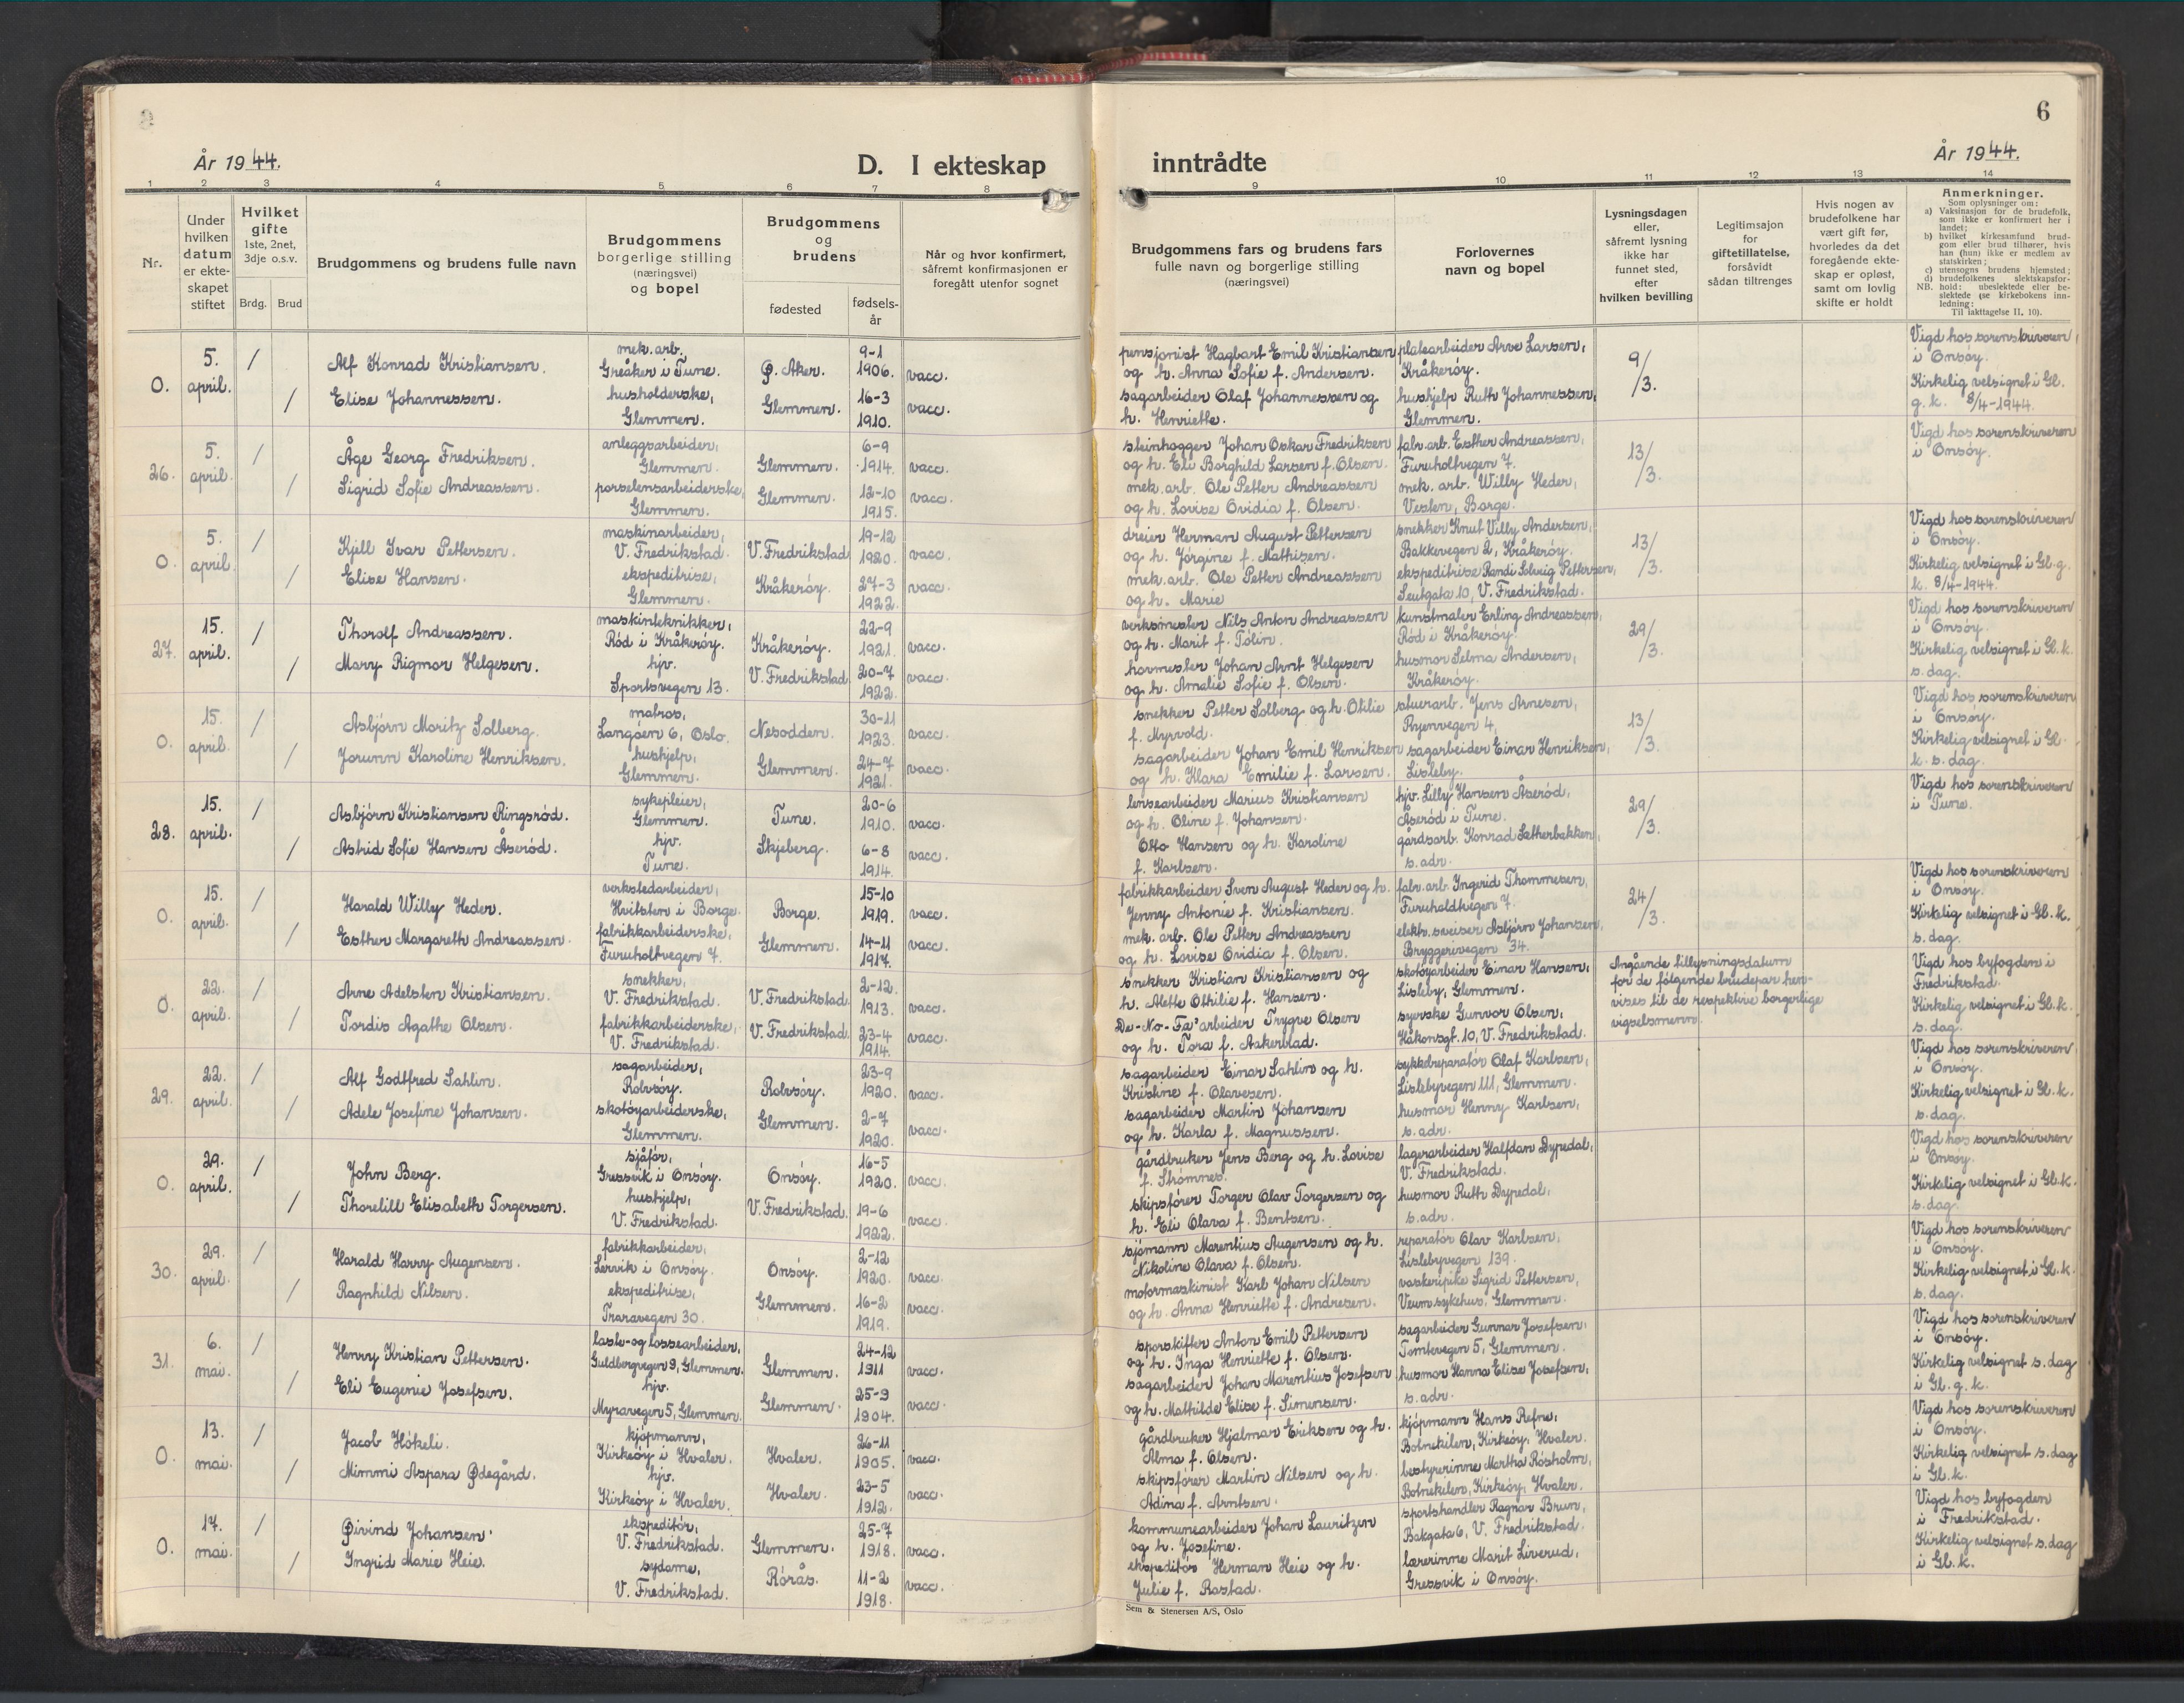 6
År 1944.
D. I ekteskap inntrådte
År 1944.
1 2 3 4 5 6 7 8 9 10 11 12 13 14
Nr.
Under hvilken datum er ekteskapet stiftet
Hvilket gifte
1ste, 2net, 3dje o.s.v.
Brdg. Brud
Brudgommens og brudens fulle navn
Brudgommens borgerlige stilling (næringsvei) og bopel
Brudgommens og brudens
fødested
fødsels-år
Når og hvor konfirmert, såfremt konfirmasjonen er foregått utenfor sognet
Brudgommens fars og brudens fars fulle navn og borgerlige stilling (næringsvei)
Forlovernes navn og bopel
Lysningsdagen eller, såfremt lysning ikke har funnet sted, efter hvilken bevilling
Legitimsajon for giftetillatelse, forsåvidt sådan tiltrenges
Hvis nogen av brudefolkene har vært gift før, hvorledes da det foregående ekteskap er opløst, samt om lovlig skifte er holdt
Anmerkninger.
Som oplysninger om:
a) Vaksinasjon for de brudefolk, som ikke er konfirmert her i landet;
b) hvilket kirkesamfund brudgom eller brud tilhører, hvis han (hun) ikke er medlem av statskirken;
c) utensogns brudens hjemsted;
d) brudefolkenes slektskapsforhold: ubeslektede eller beslektede (se kirkebokens innledning:
NB.
Til iakttagelse II, 10).
0. 5. april. / Alf Konrad Kristiansen. mek. arb. Greåker i Tune. Ø. Aker. 9-1 1906. vacc. pensjonist Hagbart Emil Kristiansen og h. Anna Sofie f. Andersen. platearbeider Arve Larsen, Kråkerøy. 9/3. Vigd hos sorenskriveren i Onsøy.
/ Elise Johannessen. husholderske, Glemmen. Glemmen. 16-3 1910. vacc. sagarbeider Olaf Johannessen og h. Henriette. hushjelp Ruth Johannessen, Glemmen. Kirkelig velsignet i Gl. g. k. 8/4-1944.
26. 5. april. / Åge Georg Fredriksen. anleggsarbeider, Glemmen. Glemmen. 6-9 1914. vacc. steinhogger Johan Oskar Fredriksen og h. Eli Borghild Larsen f. Olsen. fabr. arb. Esther Andreassen, Furuholtvegen 7. 13/3. Vigd hos sorenskriveren i Onsøy.
/ Sigrid Sofie Andreassen. porselensarbeiderske, Glemmen. Glemmen. 12-10 1915. vacc. mek. arb. Ole Petter Andreassen og h. Lovise Ovidia f. Olsen. mek. arb. Willy Heder, Vesten, Borge.
0. 5. april. / Kjell Ivar Pettersen. maskinarbeider, V. Fredrikstad. V. Fredrikstad 19-12 1920. vacc. dreier Herman August Pettersen og h. Jørgine f. Mathisen. snekker Knut Villy Andersen, Bakkevegen 2, Kråkerøy. 13/3. Vigd hos sorenskriveren i Onsøy.
/ Elise Hansen. ekspeditrise, Glemmen. Kråkerøy. 27-3 1922. vacc. mek. arb. Ole Petter Andreassen og h. Marie ekspeditrise Randi Solveig Pettersen, Leutgata 10, V. Fredrikstad. Kirkelig velsignet i Gl. g. k. 8/4-1944.
27. 15. april. / Thorolf Andreassen. maskinteknikker, Rød i Kråkerøy. Kråkerøy. 22-9 1921. vacc. verksmester Nils Anton Andreassen og h. Marit f. Tolin. kunstmaler Erling Andreassen, Rød i Kråkerøy. 29/3. Vigd hos sorenskriveren i Onsøy.
/ Mary Rigmor Helgesen. hjv. Sportsvegen 13. V. Fredrikstad 20-7 1922. vacc. havmester Johan Arnt Helgesen og h. Amalie Sofie f. Olsen. husmor Selma Andersen, Kråkerøy. Kirkelig velsignet i Gl. k. s. dag.
0. 15. april. / Asbjørn Moritz Solberg. matros, Langåen 6, Oslo. Nesodden. 30-11 1923. vacc. snekker Petter Solberg og h. Otilie f. Myrvold. stuerarb. Jens Arnesen, Ryenvegen 4, 13/3. Vigd hos sorenskriveren i Onsøy.
/ Jorunn Karoline Henriksen. hushjelp, Glemmen. Glemmen. 24-7 1921. vacc. sagarbeider Johan Emil Henriksen og h. Klara Emilie f. Larsen. sagarbeider Einar Henriksen, Lisleby. Kirkelig velsignet i Gl. k. s. dag.
28. 15. april. / Asbjørn Kristiansen Ringsrød. sykepleier, Glemmen. Tune. 20-6 1910. vacc. lensearbeider Marius Kristiansen og h. Oline f. Johansen. hjv. Lilly Hansen Åserød, Åserød i Tune. 29/3. Vigd hos sorenskriveren i Tune.
/ Astrid Sofie Hansen Åserød. hjv. Tune. Skjeberg. 6-8 1914. vacc. Otto Hansen og h. Karoline f. Karlsen. gårdsarb. Konrad Sætherbakken, s. adr.
0. 15. april. / Harald Willy Heder. verkstedarbeider, Hvitsten i Borge. Borge. 15-10 1919. vacc. fabrikkarbeider Sven August Heder og h. Jenny Antonie f. Kristiansen. fabr. arb. Ingerid Thommesen, Furuholdtvegen 7. 24/3. Vigd hos sorenskriveren i Onsøy.
/ Esther Margareth Andreassen. fabrikkarbeiderske, Furuholtvegen 7. Glemmen. 14-11 1917. vacc. mek. arb. Ole Petter Andreassen og h. Lovise Ovidia f. Olsen. elektr. sveiser Asbjørn Johansen, Bryggerivegen 34. Kirkelig velsignet i Gl. k. s. dag.
0. 22. april. / Arne Adelsten Kristiansen. snekker, V. Fredrikstad. V. Fredrikstad. 2-12 1913. vacc. snekker Kristian Kristiansen og h. Alette Othilie f. Hansen. skotøyarbeider Einar Hansen, Lisleby, Glemmen. Angående tillysningsdatum for de følgende brudepar henvises til de respektive borgerlige vigselsmenn. Vigd hos byfogden i Fredrikstad.
/ Tordis Agathe Olsen. fabrikkarbeiderske, V. Fredrikstad. V. Fredrikstad. 23-4 1914. vacc. De-No-Fa' arbeider Trygve Olsen og h. Tora f. Aakerblad. syerske Gunvor Olsen, Håkonsgt. 10, V. Fredrikstad. Kirkelig velsignet i Gl. k. s. dag.
29. 22. april. / Alf Godtfred Sahlin. sagarbeider, Rolvsøy. Rolvsøy. 23-9 1920. vacc. sagarbeider Einar Sahlin og h. Kristine f. Olavesen. sykkelreparatør Olaf Karlsen, Lislebyvegen 111, Glemmen. Vigd hos sorenskriveren i Onsøy.
/ Adele Josefine Johansen. skotøyarbeiderske, Glemmen. Glemmen. 2-7 1920. vacc. sagarbeider Martin Johansen og h. Karla f. Magnussen. husmor Henny Karlsen, s. adr. Kirkelig velsignet i Gl. k. s. dag.
0. 29. april. / John Berg. sjåfør, Gressvik i Onsøy. Onsøy. 16-5 1920. vacc. gårdbruker Jens Berg og h. Lovise f. Strømnes. lagerarbeider Halfdan Dypedal, V. Fredrikstad. Vigd hos sorenskriveren i Onsøy.
/ Thorelill Elisabeth Torgersen. hushjelp, V. Fredrikstad. V. Fredrikstad. 19-6 1922. vacc. skipsfører Torger Olav Torgersen og h. Eli Olava f. Bentsen. husmor Ruth Dypedal, s. adr. Kirkelig velsignet i Gl. k. s. dag.
30. 29. april. / Harald Harry Augensen. fabrikkarbeider, Lervik i Onsøy. Onsøy. 2-12 1920. vacc. sjømann Marentius Augensen og h. Nikoline Olava f. Olsen. reparatør Olav Karlsen, Lislebyvegen 139. Vigd hos sorenskriveren i Onsøy.
/ Ragnhild Nilsen. ekspeditrise, Traravegen 30. Glemmen. 16-2 1919. vacc. motormaskinist Karl Johan Nilsen og h. Anna Henriette f. Andresen. vaskeripike Sigrid Pettersen, Veum sykehus, Glemmen. Kirkelig velsignet i Gl. k. s. dag.
31. 6. mai. / Henry Kristian Pettersen. laste- og lossearbeider, Guldbergvegen 9, Glemmen. Glemmen. 24-12 1911 vacc. sporskifter Anton Emil Pettersen og h. Inga Henriette f. Olsen. sagarbeider Gunnar Josefsen, Tomtevegen 5, Glemmen. Vigd hos sorenskriveren i Onsøy.
/ Eli Eugenie Josefsen. hjv. Myravegen 5, Glemmen. Glemmen. 25-9 1904. vacc. sagarbeider Johan Marentius Josefsen og h. Mathilde Elise f. Simensen. husmor Hanna Elise Josefsen, s. adr. Kirkelig velsignet s. dag i Gl. g. k.
0. 13. mai. / Jacob Håkeli. kjøpmann, Kirkeøy i Hvaler. Hvaler. 26-11 1905. vacc. gårdbruker Hjalmar Eriksen og h. Alma f. Olsen. kjøpmann Hans Refne, Botnekilen, Kirkeøy, Hvaler. Vigd hos sorenskriveren i Onsøy.
/ Mimmi Aspara Ødegård. hjv. Kirkeøy i Hvaler. Hvaler. 23-5 1912. vacc. skipsfører Martin Nilsen og h. Adina f. Arntsen. bestyrerinne Martha Røsholm, Botnekilen, Kirkeøy, Hvaler. Kirkelig velsignet s. dag i Gl. k.
0. 17. mai. / Øivind Johansen. ekspeditør, V. Fredrikstad. Glemmen. 25-7 1918. vacc. kommunearbeider Johan Lauritzen og h. Josefine. sportshandler Ragnar Brun, Bakgata 6, V. Fredrikstad. Vigd hos byfogden i Fredrikstad.
/ Ingrid Marie Heie. sydame, V. Fredrikstad. Rørås. 11-2 1918. vacc. ekspeditør Herman Heie og h. Julie f. Rostad. lærerinne Marit Liverud, Gressvik i Onsøy. Kirkelig velsignet s. dag i Gl. k.
Sem & Stenersen A/S, Oslo